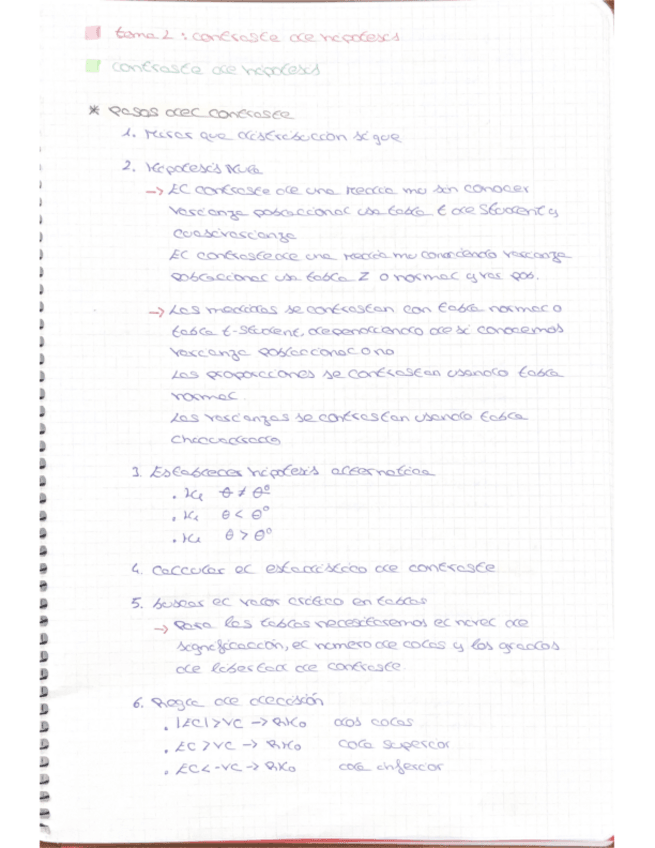 tema 2: contraste de hipotesis
contraste de hipotesis
* Pasos del contraste
1. Mirar que distribución sigue
2. Hipotesis Nula
→ El contraste de una media mu sin conocer
varianza poblacional usa tabla t de Student y
cuasivarianza
El contraste de una media mu conociendo varianza
poblacional usa tabla Z o normal y var pob.
→ Las medidas se contrastan con tabla normal o
tabla t-Student, dependiendo de si conocemos
varianza poblacional o no
Las proporciones se contrastan usando tabla
normal.
Las varianzas se contrastan usando tabla
Chicuadrado
3. Establecer hipotesis alternativa
. H1 θ ≠ θ⁰
. H1 θ < θ⁰
. H1 θ > θ⁰
4. Calcular el estadístico de contraste
5. buscar el valor crítico en tablas
→ Para las tablas necesitaremos el nivel de
significación, el numero de colas y los grados
de libertad de contraste.
6. Regla de decisión
. |EC| > VC → RH0 dos colas
. EC > VC → RH0 cola superior
. EC < -VC → RH0 cola inferior